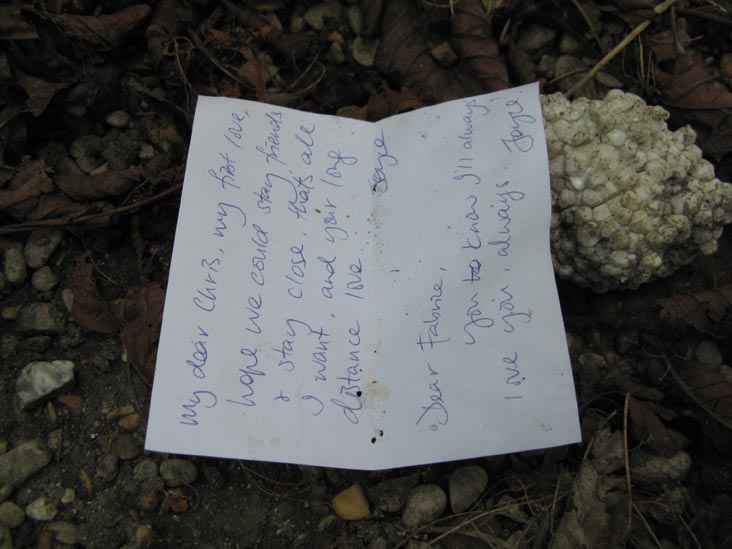 My dear Chris, my first love,
hope we could stay friends
& stay close, that's all
I want, and your long
distance love...
Joyce
Dear Fabrice,
you know I'll always
love you, always. Joyce